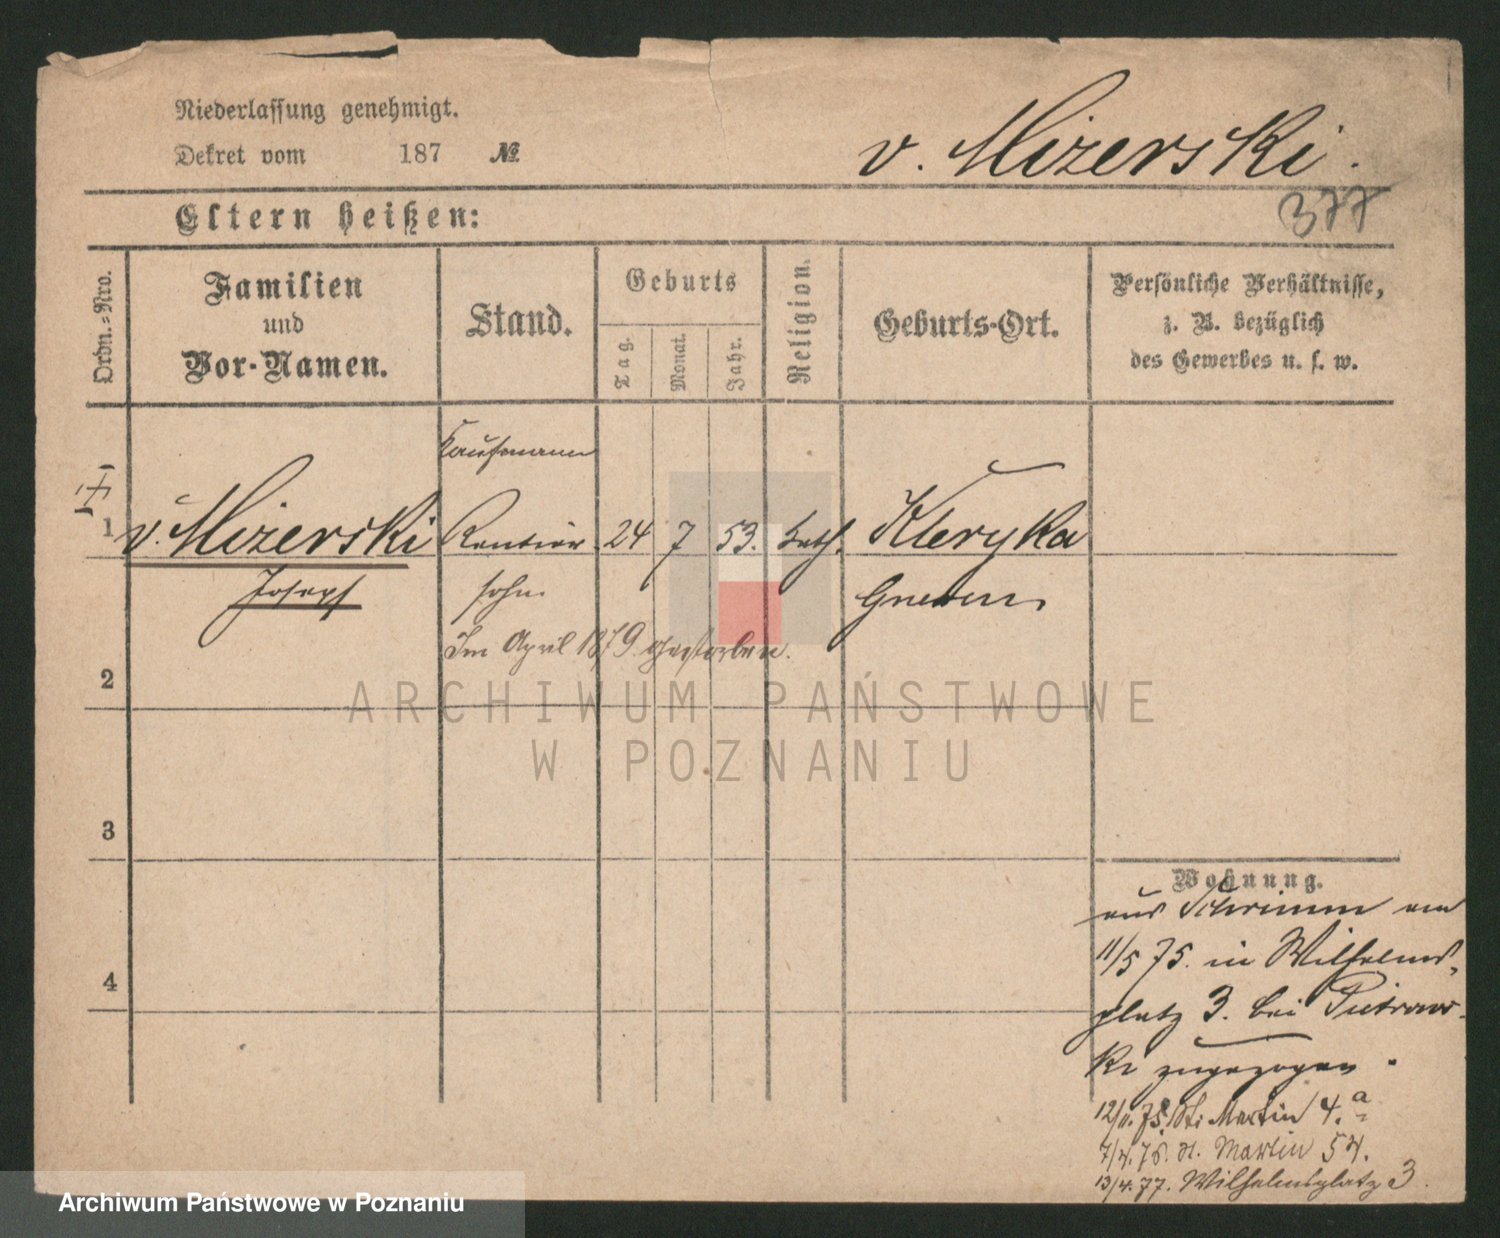 Niederlassung genehmigt.
Dekret vom 187 №
v. Mizerski.
377
Eltern heißen:
Ordn.-Nro.
Familien
und
Vor-Namen.
Stand.
Geburts
Tag.
Monat.
Jahr.
Religion.
Geburts-Ort.
Persönliche Verhältnisse,
z. B. bezüglich
des Gewerbes u. s. w.
Kaufmann
1 v. Mizerski Rentier 24 7 53. kath. Kleryka
Joseph sohn Gnesen
Im April 1879 gestorben.
2
ARCHIWUM PAŃSTWOWE
W POZNANIU
3
4
Wohnung.
aus Schrimm am
11/5 75. in Wilhelms-
platz 3. bei Pietrows-
ki zugezogen.
12/11. 75. St. Martin 4.a
7/4. 76. St. Martin 54.
13/4. 77. Wilhelmsplatz 3.
Archiwum Państwowe w Poznaniu